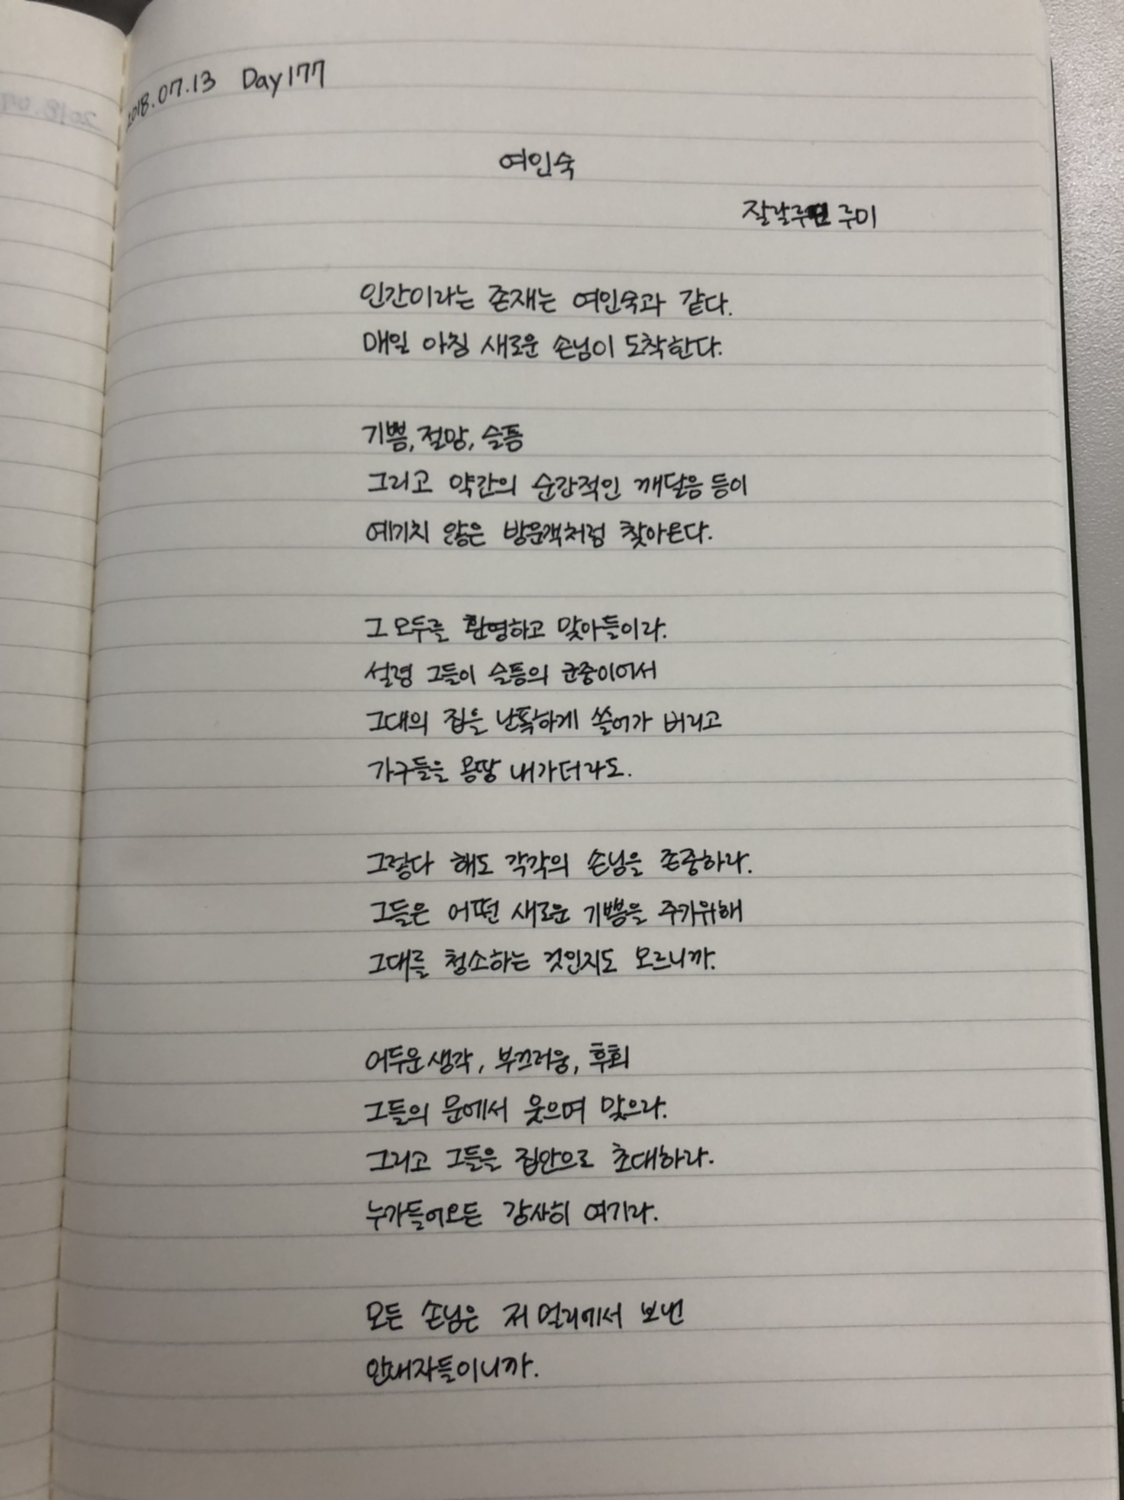 2018.07.13 Day177
여인숙
잘랄루 루미
인간이라는 존재는 여인숙과 같다.
매일 아침 새로운 손님이 도착한다.
기쁨, 절망, 슬픔
그리고 약간의 순간적인 깨달음 등이
예기치 않은 방문객처럼 찾아온다.
그 모두를 환영하고 맞아들이라.
설령 그들이 슬픔의 군중이어서
그대의 집을 난폭하게 쓸어가 버리고
가구들을 몽땅 내가더라도.
그렇다 해도 각각의 손님을 존중하라.
그들은 어떤 새로운 기쁨을 주기위해
그대를 청소하는 것인지도 모르니까.
어두운 생각, 부끄러움, 후회
그들의 문에서 웃으며 맞으라.
그리고 그들을 집안으로 초대하라.
누가들어오든 감사히 여기라.
모든 손님은 저 멀리에서 보낸
안내자들이니까.